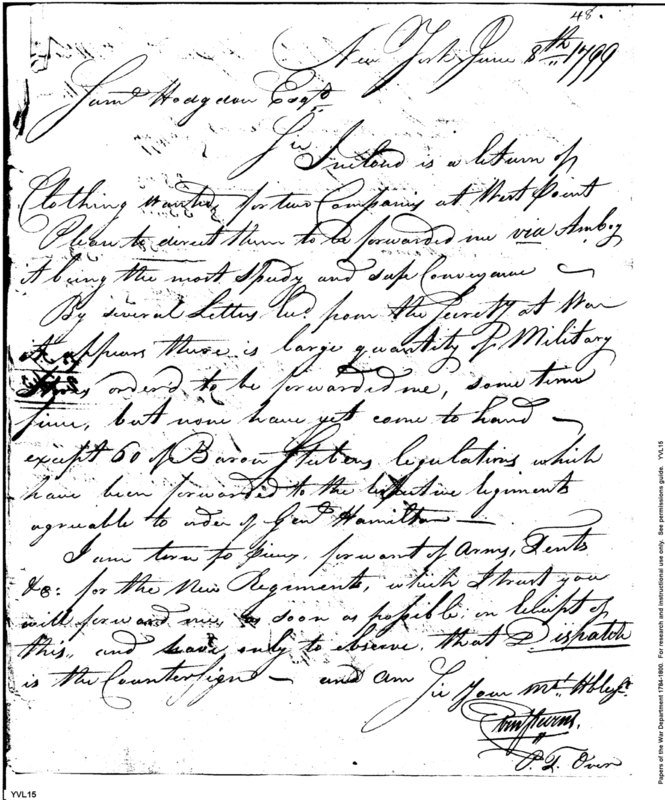 48.
New York June 8th 1799
Saml Hodgdon Esqr
Sir Inclosd is a Return of
Clothing wanted for two Companys at West Point
Please to direct them to be forwarded me via Amboy
it being the most Speedy and safe Conveyance
By several Letters Recd from the Secrety at War
it appears there is large quantity of Military
Stores orderd to be forwarded me, some time
since, but none have yet come to hand
except 60 of Baron Stubens regulations which
have been forwarded to the respective regiments
agreable to order of Genl Hamilton
I am torn to pieces for want of Arms, Tents
&c: for the New Regiments, which I trust you
will forward me as soon as possible on Receipt of
this, and have only to observe, that Dispatch
is the Countersign and am Sir Your Mt Hble St
P. T. Over
Papers of the War Department 1784-1800. For research and instructional use only. See permissions guide. YVL15
YVL15